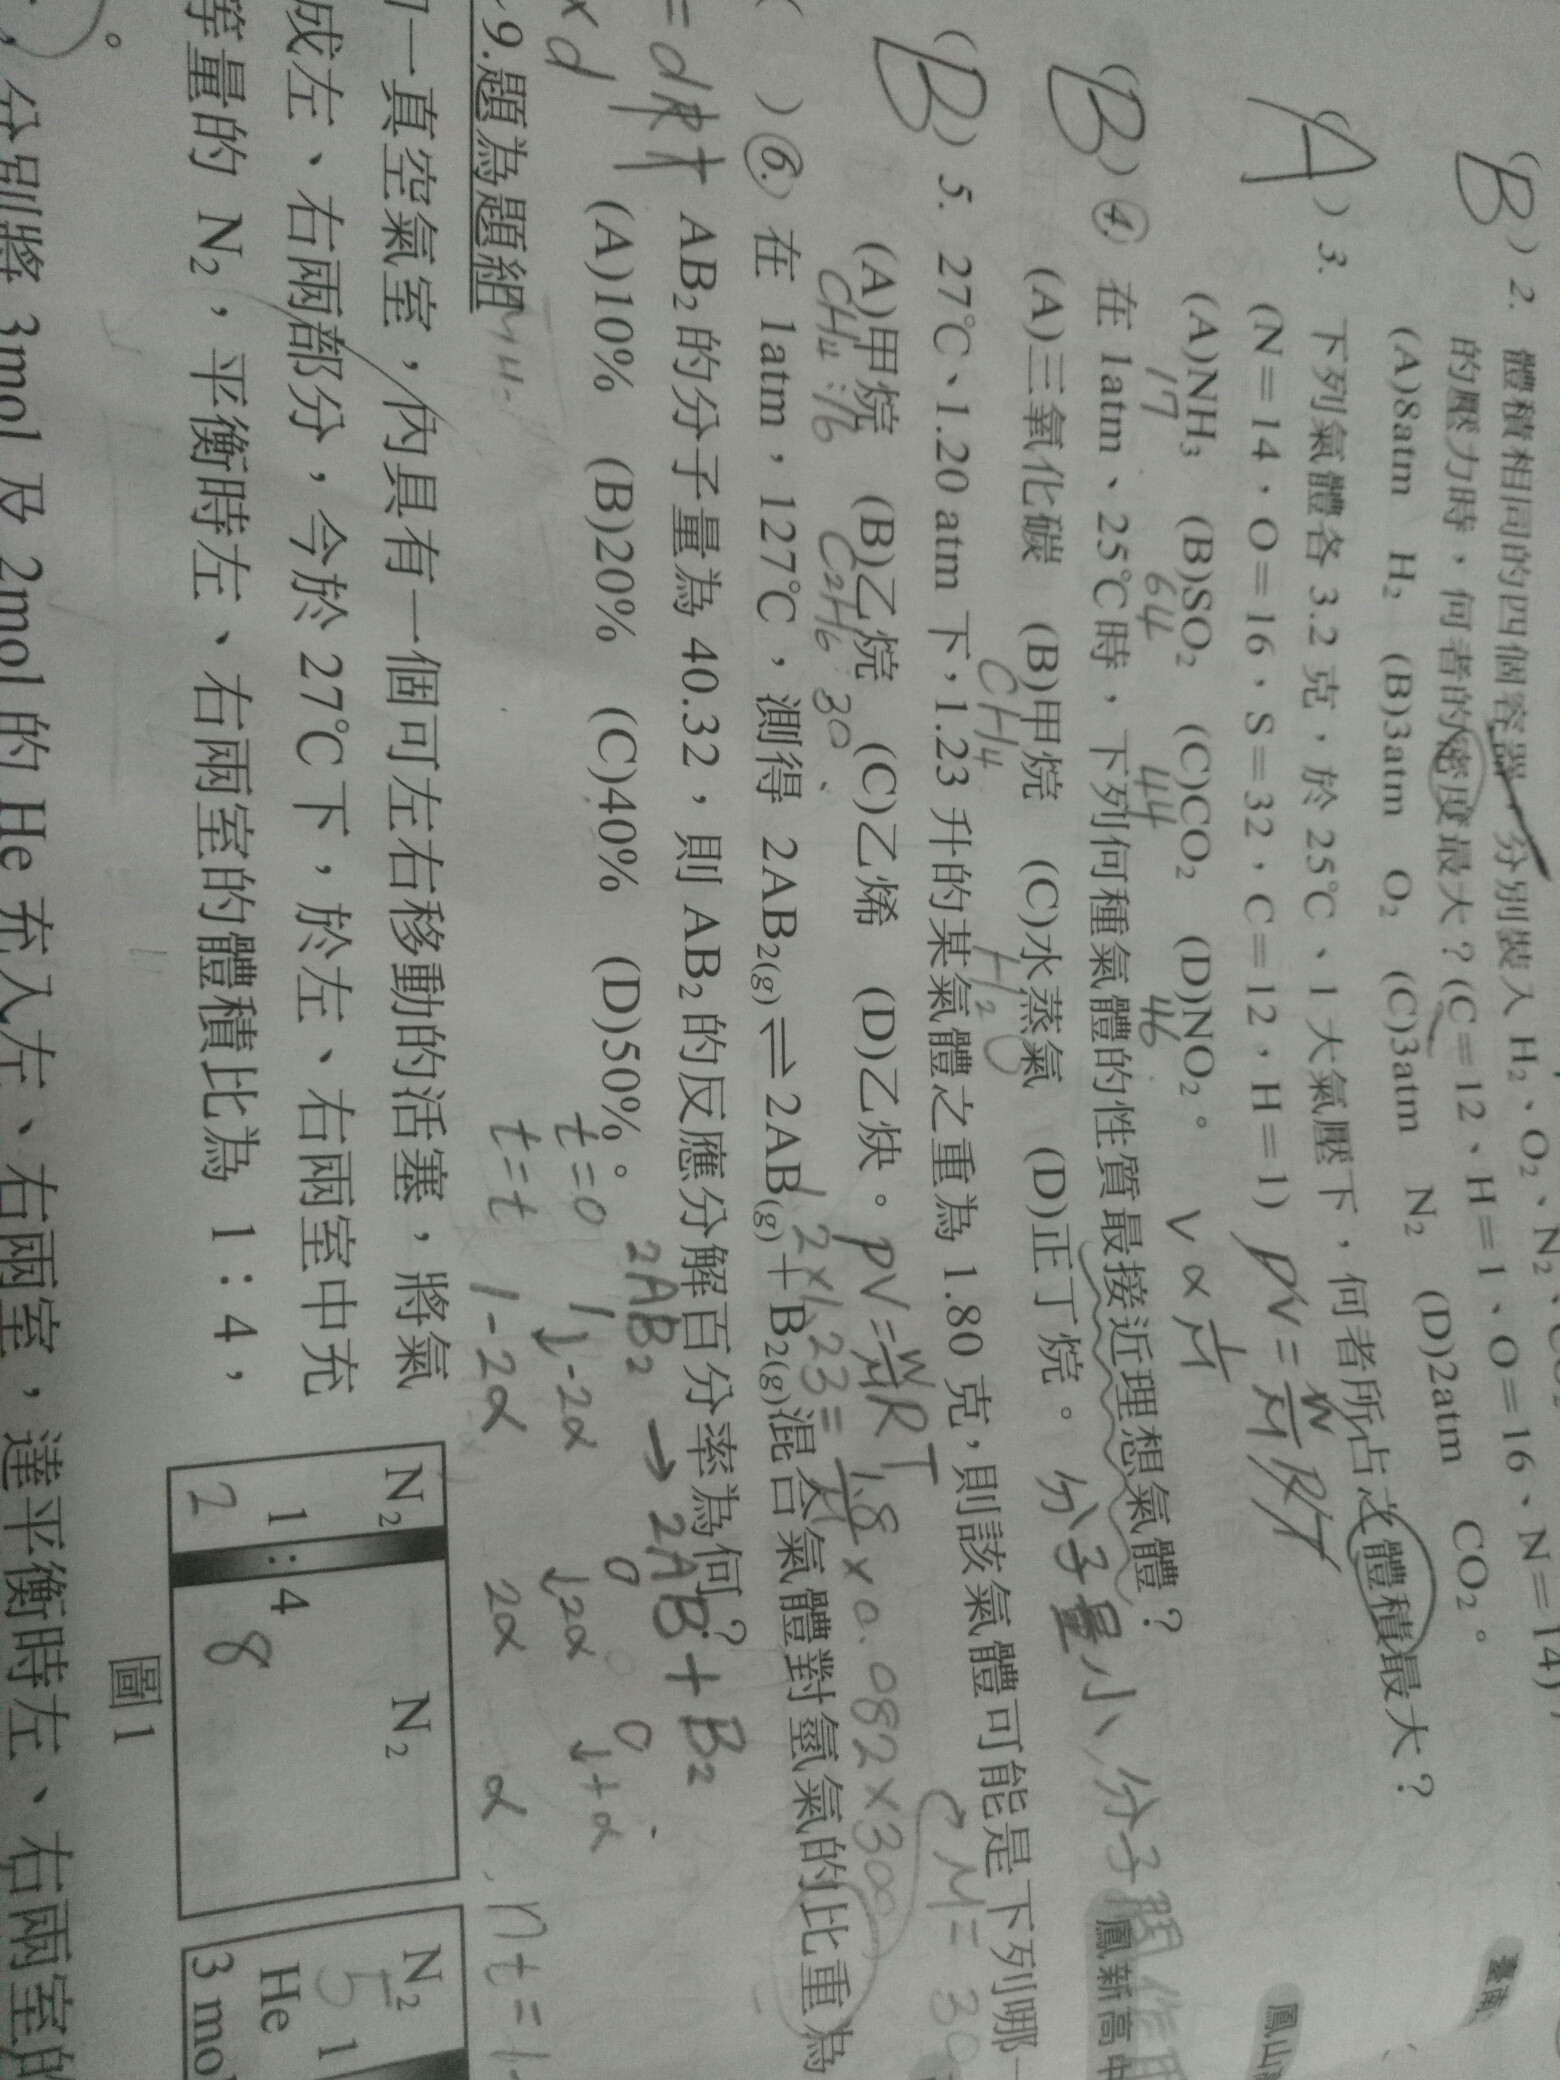 (B) 2. 體積相同的四個容器，分別裝入 H₂、O₂、N₂、
的壓力時，何者的密度最大？(C＝12、H＝1、O＝16、N＝14)
(A)8atm H₂ (B)3atm O₂ (C)3atm N₂ (D)2atm CO₂。
(A) 3. 下列氣體各 3.2 克，於 25℃、1 大氣壓下，何者所占之體積最大？
(N＝14，O＝16，S＝32，C＝12，H＝1) PV = W/M RT
(A)NH₃ (B)SO₂ (C)CO₂ (D)NO₂。 V ∝ 1/M
17 64 44 46
(B) ④ 在 1atm、25℃時，下列何種氣體的性質最接近理想氣體？
(A)三氧化碳 (B)甲烷 (C)水蒸氣 (D)正丁烷。 分子量小,分子間作用
CH4 H2O
(B) 5. 27℃、1.20 atm 下，1.23 升的某氣體之重為 1.80 克，則該氣體可能是下列哪一
(A)甲烷 (B)乙烷 (C)乙烯 (D)乙炔。 PV = W/M RT M = 30
CH4:16 C2H6:30 1.2×1.23 = 1.8/M × 0.082×300
( ) ⑥ 在 1atm，127℃，測得 2AB₂(g)⇌2AB(g)＋B₂(g)混合氣體對氫氣的比重為
AB₂的分子量為 40.32，則 AB₂的反應分解百分率為何？
= dRT
(A)10% (B)20% (C)40% (D)50%。
2AB2 → 2AB + B2
×d
t=0 1 0 0
↓-2α ↓2α ↓+α
t=t 1-2α 2α α , nt = 1
9.題為題組
一真空氣室，內具有一個可左右移動的活塞，將氣
成左、右兩部分，今於 27℃下，於左、右兩室中充
等量的 N₂，平衡時左、右兩室的體積比為 1：4，
N₂ N₂
1：4
2 8
圖 1
N₂ 5
He 1
3 mo
分別將 3mol 及 2mol 的 He 充入左、右兩室，達平衡時左、右兩室的
鳳山
鳳新高中